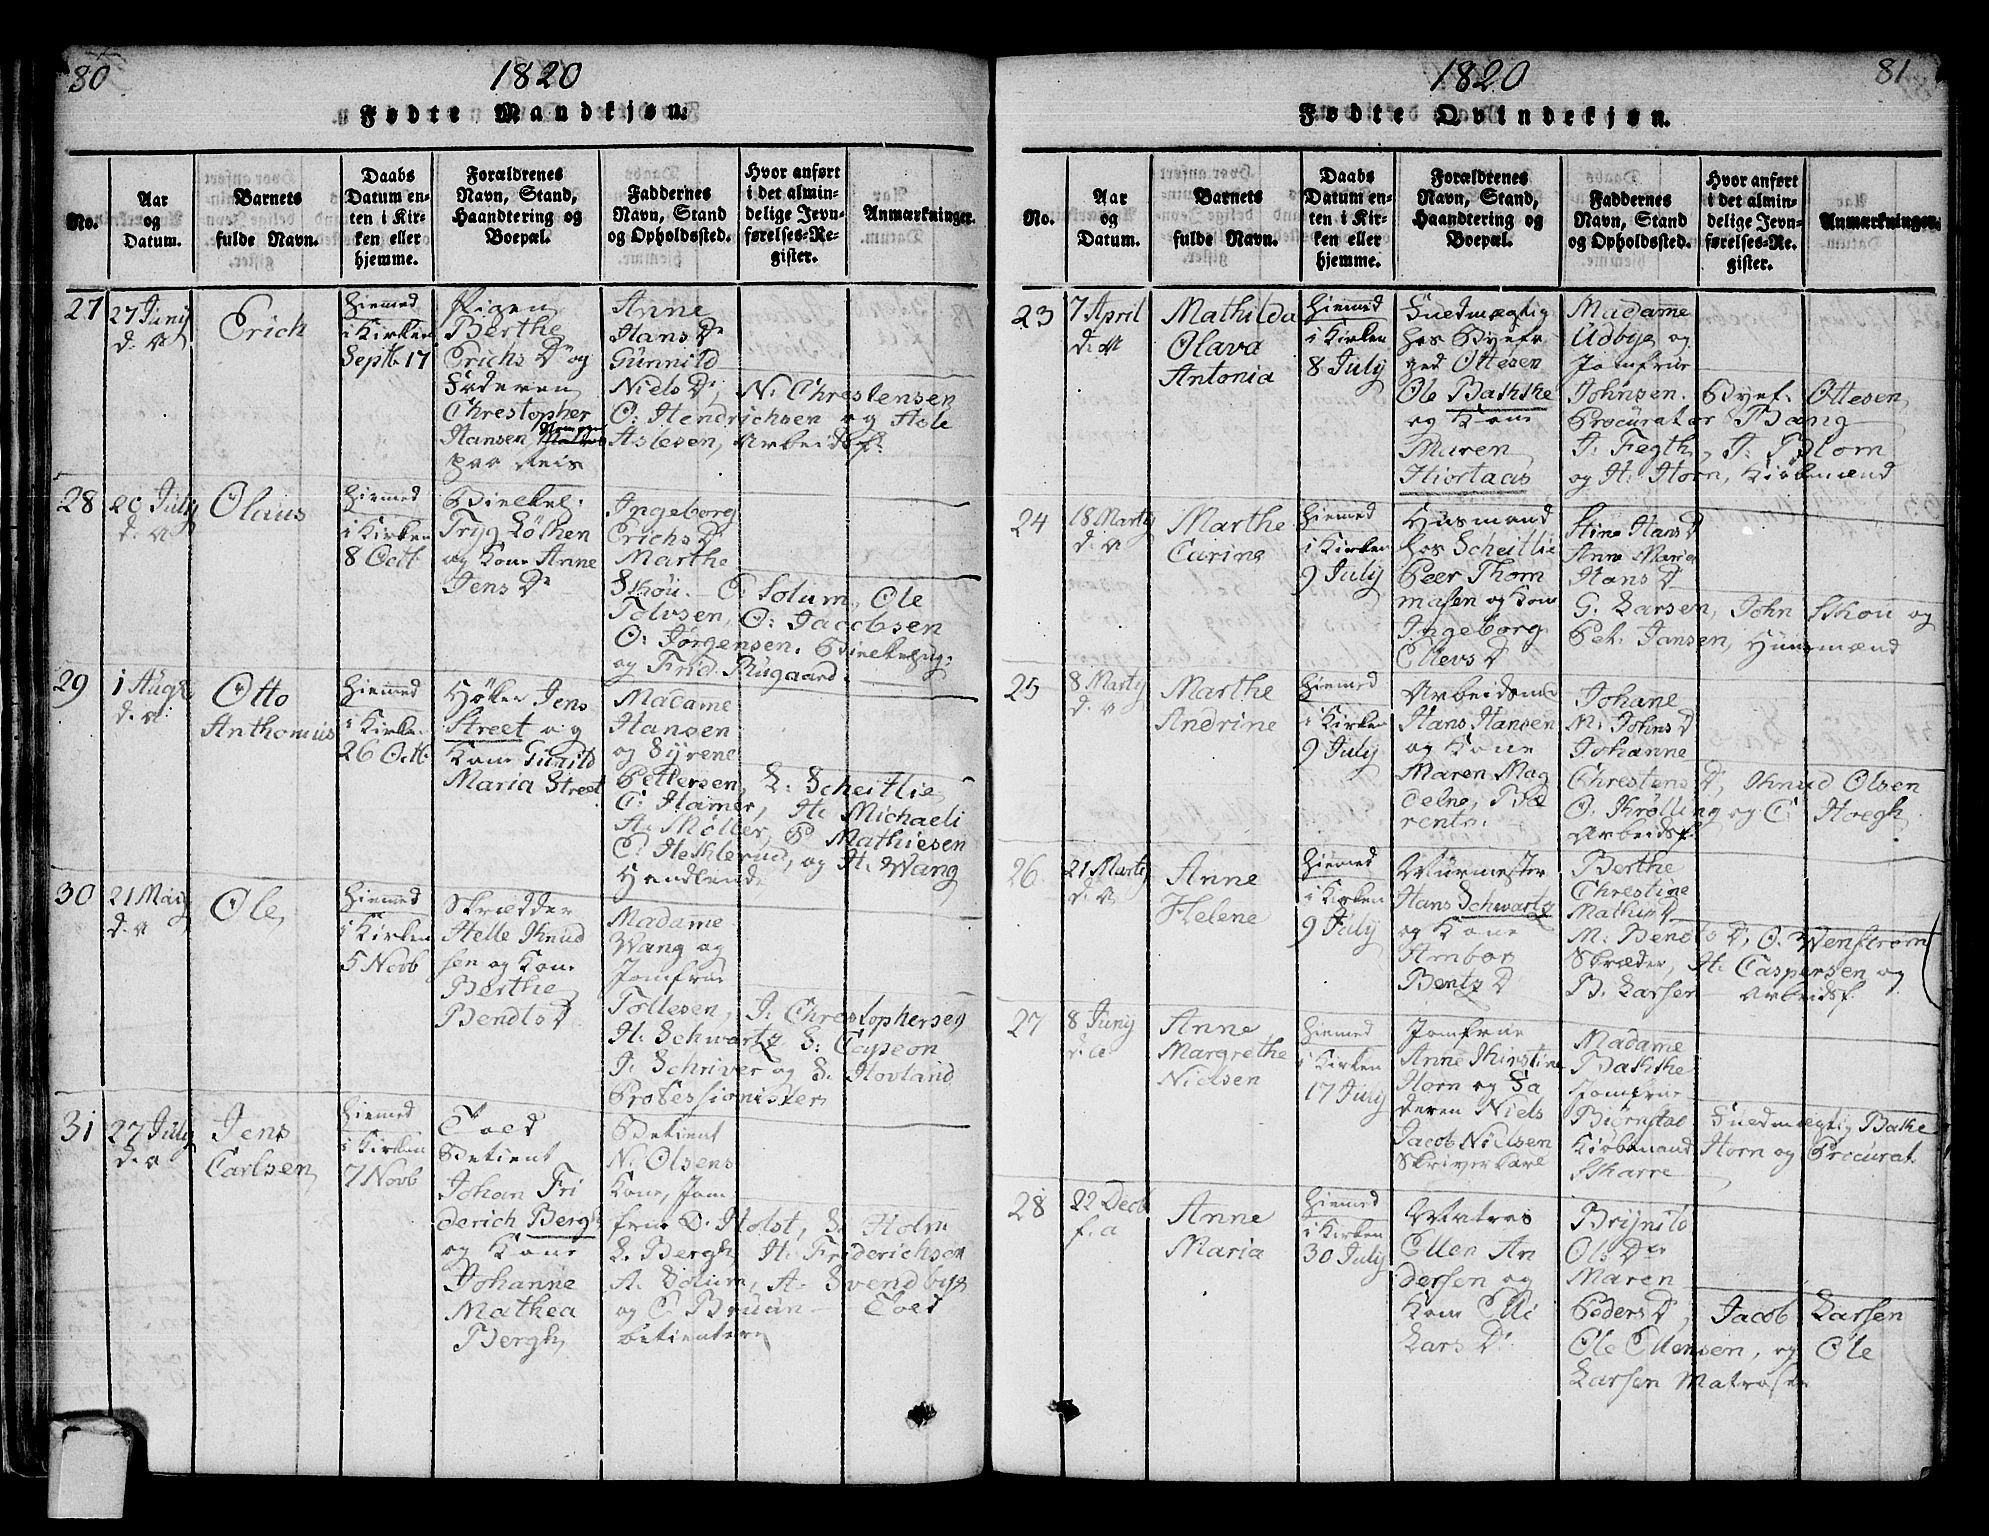 80
1820
Fødte Mandkjøn.
No.
Aar og Datum.
Barnets fulde Navn.
Daabs Datum enten i Kirken eller hjemme.
Forældrenes Navn, Stand, Haandtering og Boepæl.
Faddernes Navn, Stand og Opholdssted.
Hvor anført i det almindelige Jevnførelses-Register.
Anmærkninger.
27
27 Junij
d. A
Erich
Hiemed
i Kirken
Septb 17
Pigen
Berthe
Erichs D og
Faderen
Chrestopher
Hansen
paa Reis
Anne
Hans D
Gunnild
Niels D, N. Chrestensen
O: Hendrichsen og Hole
Aslesen, Arbeidsf.
28
20 July
d. A
Olaus
Hiemed
i Kirken
8 Octb
Tryg Løthen
og Kone Anne
Jens D
Ingeborg
Erichs D
Marthe
Skou. O Solum, Ole
Tolvsen, O: Jacobsen
O: Jørgensen.
og Frid. Rugaard.
29
1 Aug
d. A
Otto
Anthonius
Hiemed
i Kirken
26 Octb
Høker Jens
Street og
Kone Gunild
Maria Street
Madame
Hansen
og Syrene
Pettersen, L: Scheitlie
C: Hamer, H. Michaeli
A. Møller, P Mathiesen
C. Heklerud, og H. Wang
Handlende
30
21 May
d. A
Ole
Hiemed
i Kirken
5 Novb
Skrædder
Helle Knud
sen og Kone
Berthe
Bendts D
Madame
Wang og
Jomfrue
Tollesen, J. Chrestophersen
H. Schwartz S: Capeon
J. Schriver og S. Hovland
Professionister
31
27 July
d. A
Jens
Carlsen
Hiemed
i Kirken
7 Novb
Told
Betient
Johan Fri
derich Bergh
og Kone
Johanne
Mathea
Bergh
Betient
N. Olsens
Kone, Jom
frue D. Holst, S. Holm
L. Bergh, H. Friderichsen
A. Solum, A. Svendbye
og C Bruun Told
betientere
1820
81
Fødte Qvindekjøn.
No.
Aar og Datum.
Barnets fulde Navn.
Daabs Datum enten i Kirken eller hjemme.
Forældrenes Navn, Stand, Haandtering og Boepæl.
Faddernes Navn, Stand og Opholdssted.
Hvor anført i det almindelige Jevnførelses-Register.
Anmærkninger.
23
7 April
d. A
Mathilda
Olava
Antonia
Hiemed
i Kirken
8 July
Fuldmægtig
hos Byefo
ged Ottesen
Ole Bakthe
og Kone
Maren
Hiortaas
Madame
Udbye og
Jomfrue
Johnsen. Byef. Ottesen
Procurator Bang
A. Fegth, A. Blom
og H. Horn, Kiøbmænd
24
18 Marty
d. A
Marthe
Carine
Hiemed
i Kirken
9 July
Husmand
hos Scheitlie
Peer Thom
masen og Kone
Ingeborg
Ellevs D
Stine Hans D
Anne Maria
Hans D
G. Larsen, John Skou og
Pet. Jansen, Huusmænd
25
8 Marty
d. A
Marthe
Andrine
Hiemed
i Kirken
9 July
Arbeidsmd
Hans Hansen
og Kone
Maren Mag
delne, Bø
rente.
Johane
M: Johns D
Johanne
Chrestens D, Knud Olsen
O. Krølling og C. Høegh
Arbeidsf.
26
21 Marty
d. A
Anne
Helene
Hiemed
i Kirken
9 July
Murmester
Hans Schwartz
og Kone
Annbor
Bentz D
Berthe
Chrestine
Mathis D
M. Bendts D, O. Wenstrøm
Skræder, H. Caspersen og
B. Larsen Arbeidsf.
27
8 Juny
d. a
Anne
Margrethe
Nielsen
Hiemed
i Kirken
17 July
Jomfrue
Anne Kirstine
Horn og Fa
deren Niels
Jacob Nielsen
Skriverkarl
Madame
Bakthe
Jomfrue
Biørnstad Fuldmægtig Bakke
Kiøbmand Horn og Procurat.
Skarre
28
22 Decb
f. a
Anne
Maria
Hiemed
i Kirken
30 July
Matros
Ellen An
dersen og
Kone Elli
Lars D.
Brynild
Ols Dr
Maren
Peders D, Jacob Larsen
Ole Ellensen, og Ole
Larsen Matroser